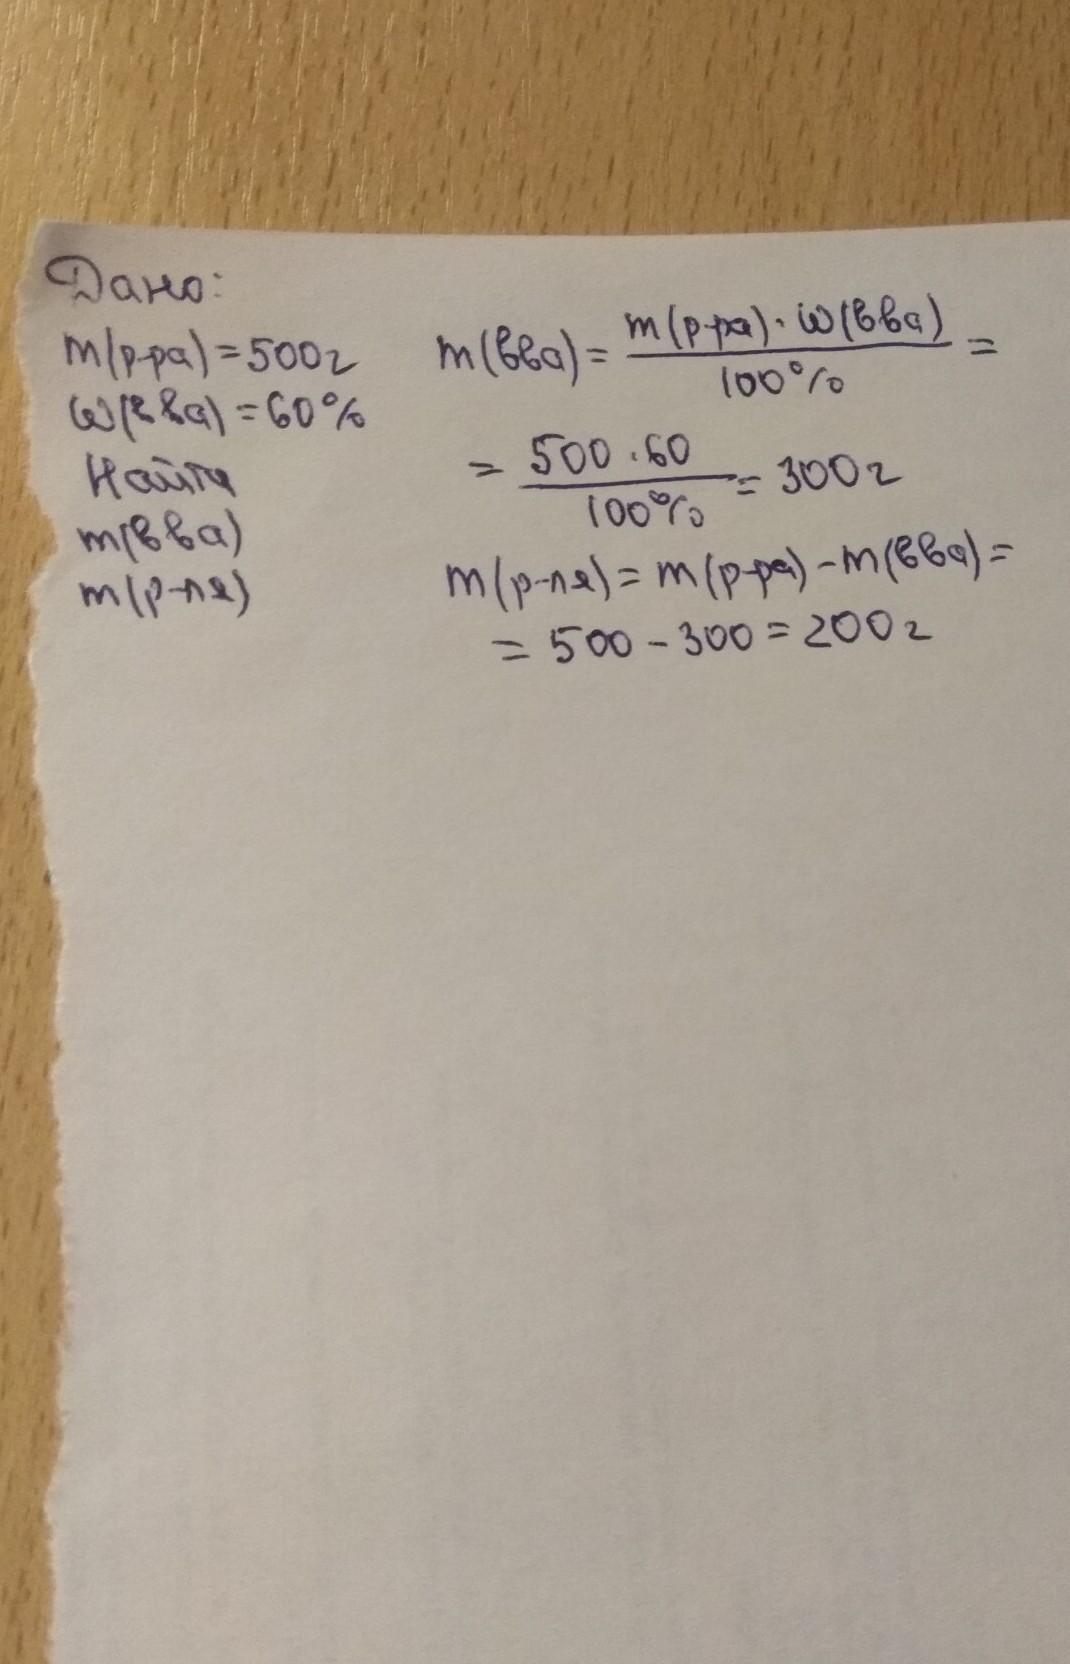 Дано:
m(р-ра) = 500г
ω(вва) = 60%
Найти
m(вва)
m(р-ля)
m(вва) = m(р-ра) · ω(вва) / 100% =
= 500 · 60 / 100% = 300г
m(р-ля) = m(р-ра) - m(вва) =
= 500 - 300 = 200г